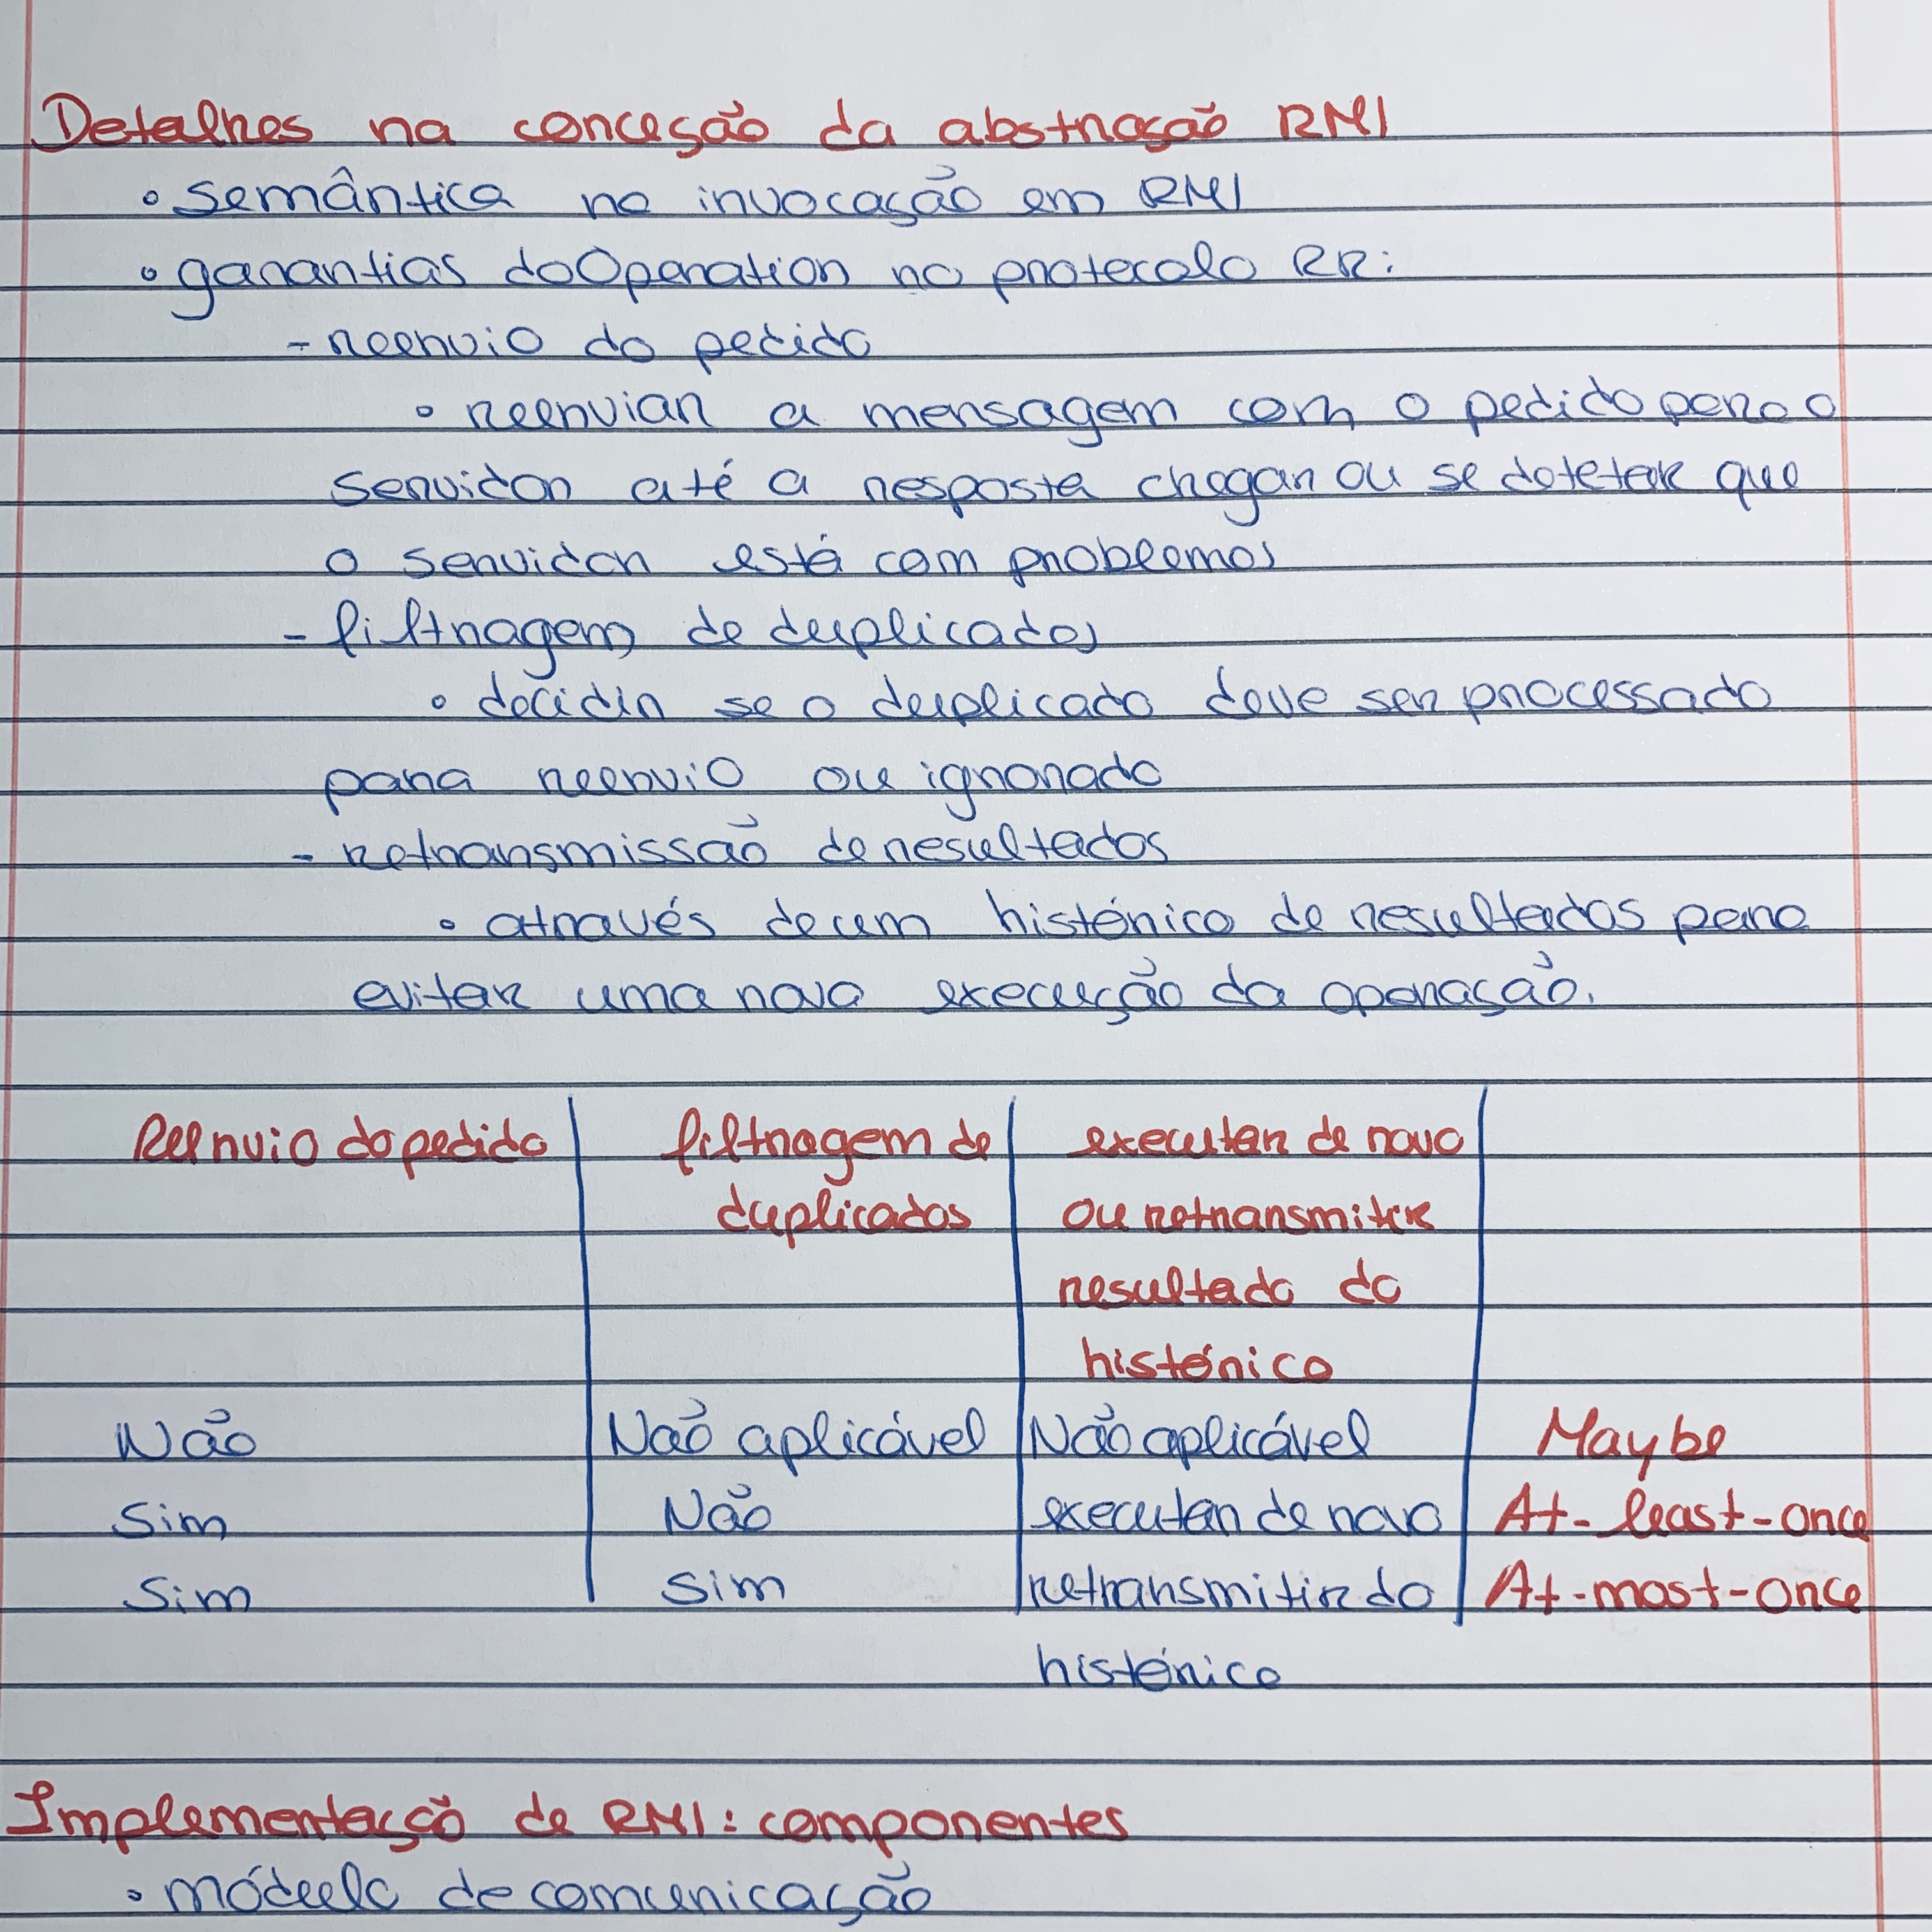 Detalhes na conceção da abstração RMI
• semântica na invocação em RMI
• garantias doOperation no protocolo RR:
- reenvio do pedido
• reenviar a mensagem com o pedido para o
servidor até a resposta chegar ou se detetar que
o servidor está com problemas
- filtragem de duplicados
• decidir se o duplicado deve ser processado
para reenvio ou ignorado
- retransmissão de resultados
• através de um histórico de resultados para
evitar uma nova execução da operação.
Reenvio do pedido filtragem de executar de novo
duplicados ou retransmitir
resultado do
histórico
Não Não aplicável Não aplicável Maybe
Sim Não executar de novo At-least-once
Sim Sim retransmitir do At-most-once
histórico
Implementação de RMI: componentes
• módulo de comunicação